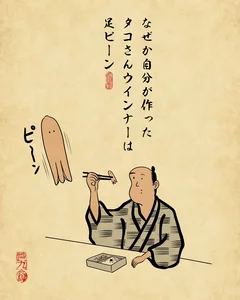 なぜか自分が作った
タコさんウインナーは
足ピーン
ピーン